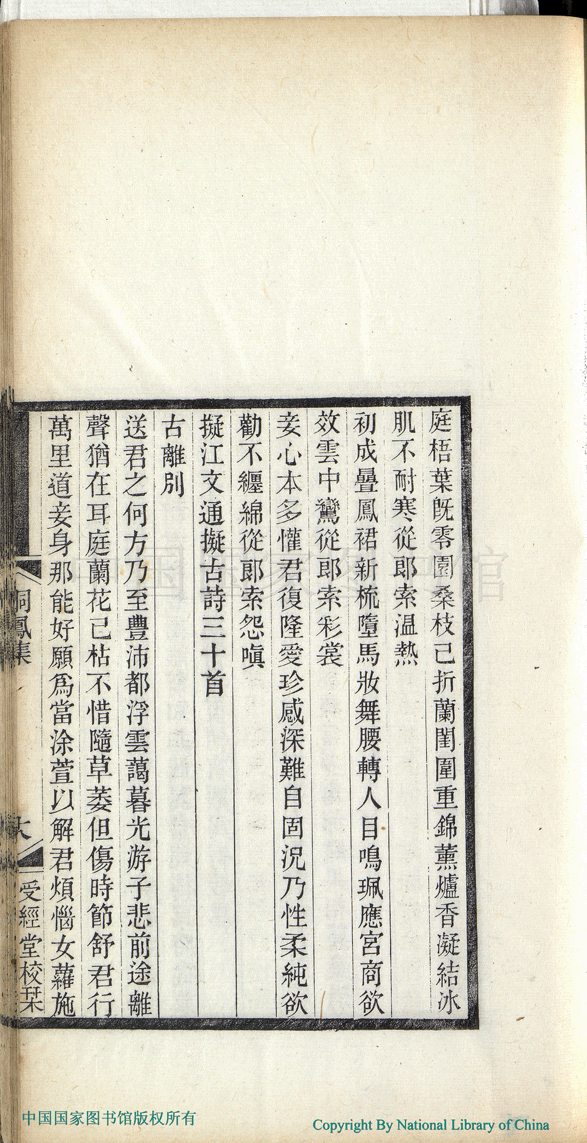 庭梧葉旣零園桑枝已折蘭閨圍重錦薰爐香凝結冰
肌不耐寒從郞索溫熱
初成疊鳳裙新梳墮馬妝舞腰轉人目鳴珮應宮商欲
效雲中鸞從郞索彩裳
妾心本多懽君復隆愛珍感深難自固況乃性柔純欲
勸不纏綿從郞索怨嗔
擬江文通擬古詩三十首
古離別
送君之何方乃至豐沛都浮雲藹暮光游子悲前途離
聲猶在耳庭蘭花已枯不惜隨草萎但傷時節舒君行
萬里道妾身那能好願爲當涂萱以解君煩惱女蘿施
桐鳳集
受經堂校栞
中国国家图书馆
中国国家图书馆版权所有
Copyright By National Library of China